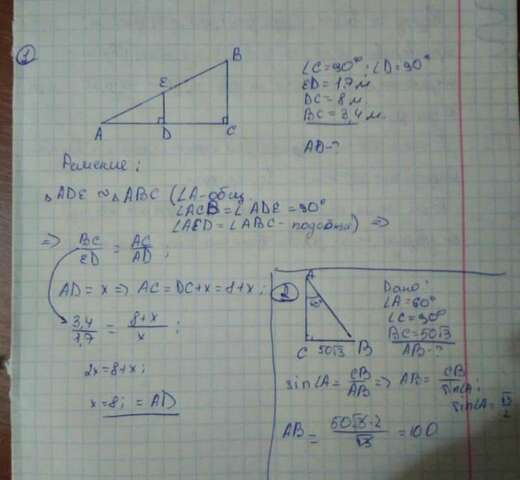 1
A
E
B
D
C
∠C=90°; ∠D=90°
ED=1,7 м
DC=8 м
BC=3,4 м
AD-?
Решение:
△ADE ∾ △ABC (∠A-общ
∠ACB=∠ADE=90°
∠AED=∠ABC- подобны) =>
=> BC/ED = AC/AD;
AD=x => AC=DC+x=8+x;
3,4/1,7 = 8+x/x;
2x=8+x;
x=8; =AD
2
A
60°
C 50√3 B
Дано:
∠A=60°
∠C=90°
BC=50√3
AB-?
sin∠A= CB/AB => AB= CB/sin∠A;
sin∠A= √3/2
AB = 50√3·2/√3 =100